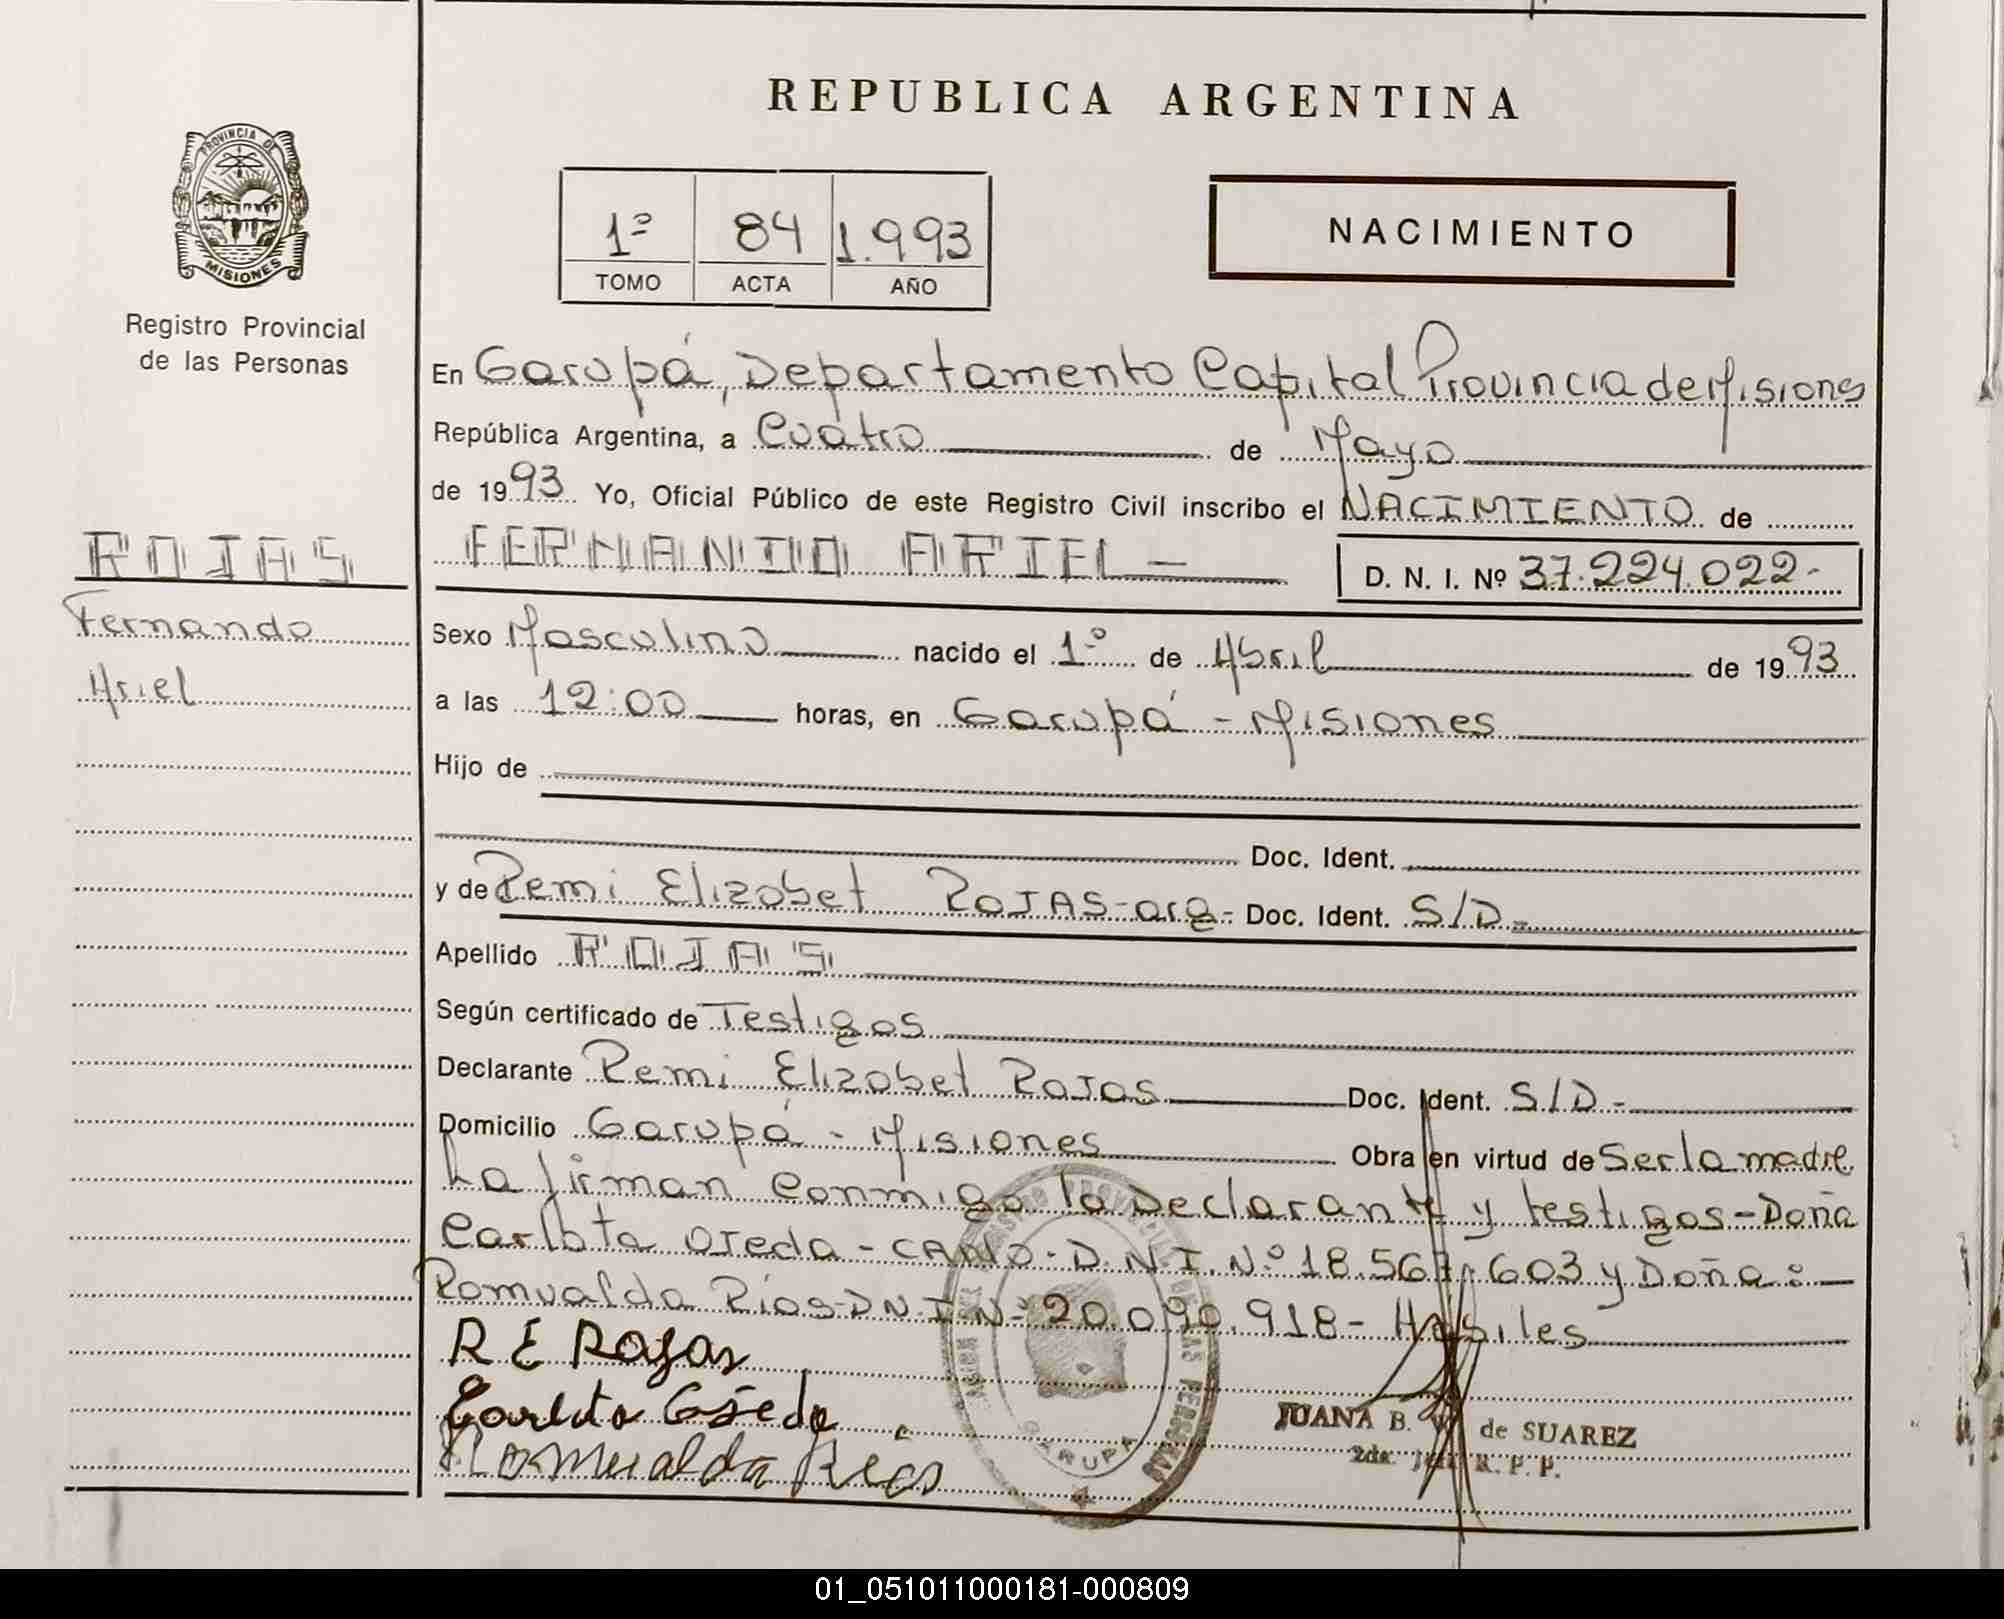 REPUBLICA ARGENTINA
PROVINCIA DE
MISIONES
Registro Provincial
de las Personas
1º 84 1.993
TOMO ACTA AÑO
NACIMIENTO
En Garupá, Departamento Capital Provincia de Misiones
República Argentina, a Cuatro de Mayo
de 1993 Yo, Oficial Público de este Registro Civil inscribo el NACIMIENTO de
ROJAS
Fernando
Ariel
FERNANDO ARIEL-
D. N. I. Nº 37.224.022-
Sexo Masculino nacido el 1º de Abril de 1993
a las 12:00 horas, en Garupá - Misiones
Hijo de
Doc. Ident.
y de Remi Elizabet ROJAS-arg- Doc. Ident. S/D-
Apellido ROJAS
Según certificado de Testigos
Declarante Remi Elizabet Rojas Doc. Ident. S/D-
Domicilio Garupá - Misiones Obra en virtud de Ser la madre
La firman conmigo la Declarante y testigos-Doña
Carlota Ojeda-CANO-D.N.I.Nº18.567.603 y Doña:
Romualda Ríos-D.N.I Nº20.090.918-Hábiles
R E Rojas
Carlota Ojeda
Romualda Rios
GARUPA
JUANA B. de SUAREZ
2da. Jefe R. P. P.
01_051011000181-000809